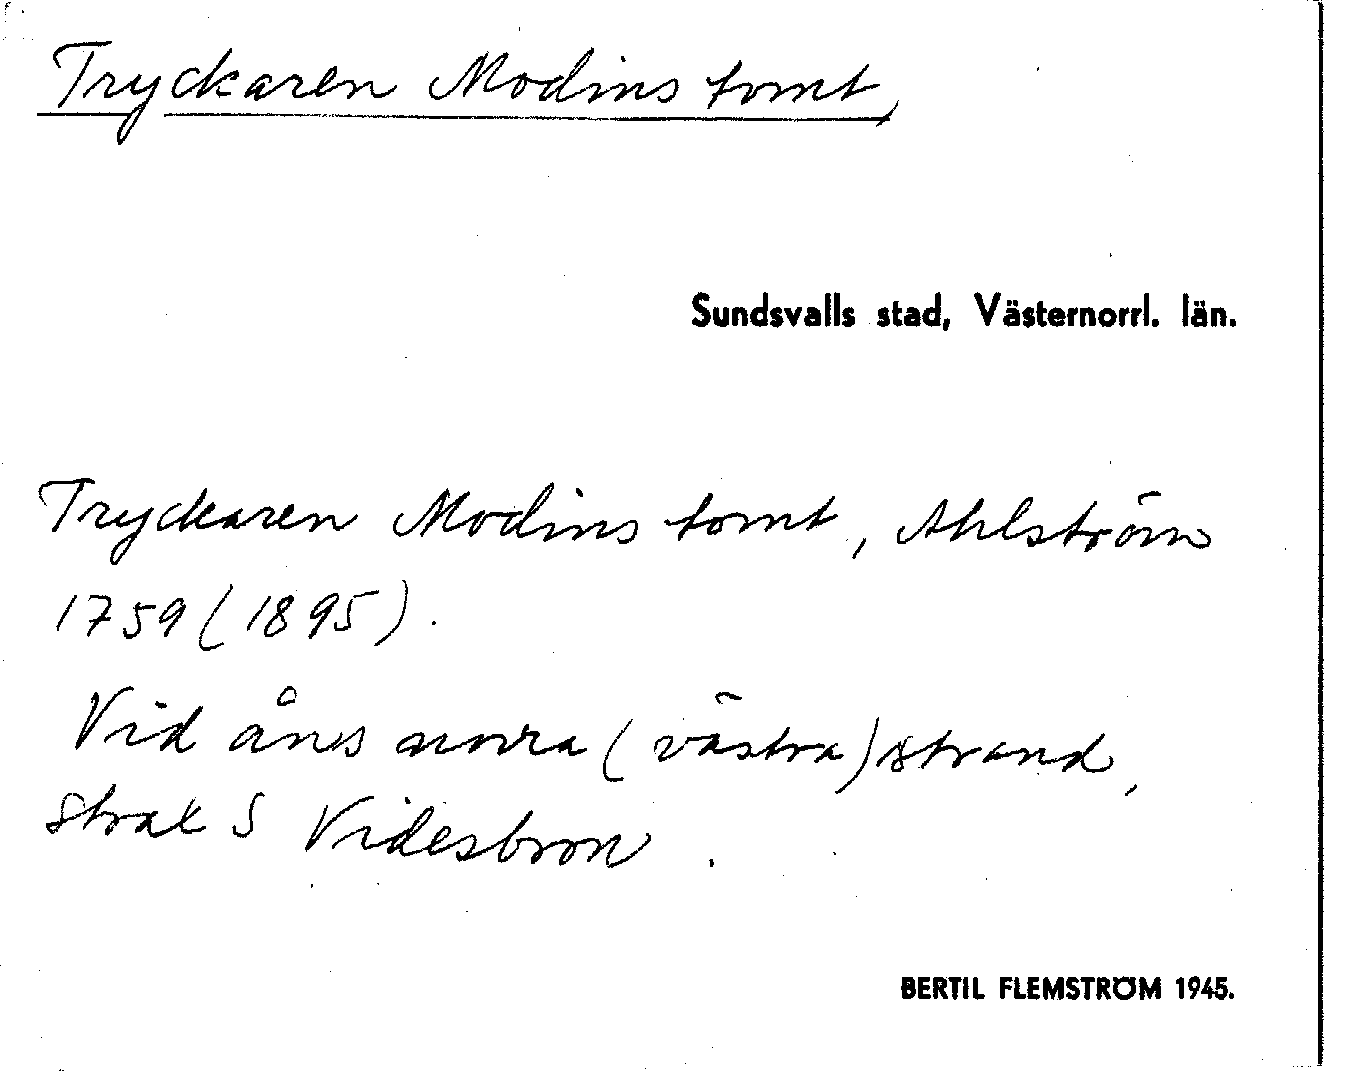 Tryckaren Modins tomt,
Sundsvalls stad, Västernorrl. län.
Tryckaren Modins tomt, Ahlström
1759 (1895).
Vid åns norra (västra) strand,
strax S Videsbron.
BERTIL FLEMSTRÖM 1945.